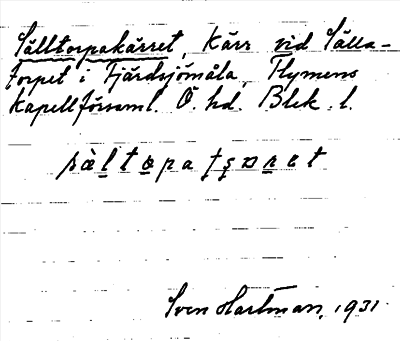 Sälltorpakärret, Kärr vid Sälla-
torpet i Fjärdsjömåla, Flymens
kapellförsaml. Ö. hd. Blek. l.
Sven Hartman, 1931